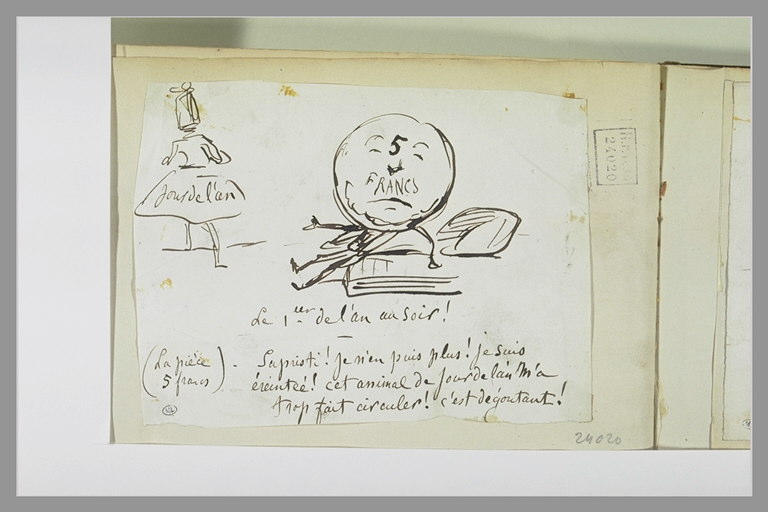 Jour de l'an
5
FRANCS
Le 1er de l'an au soir!
(La pièce 5 francs) - Sapristi! Je n'en puis plus! je suis
éreintée! cet animal de Jour de l'an m'a
trop fait circuler! c'est dégoutant!
24020
24020